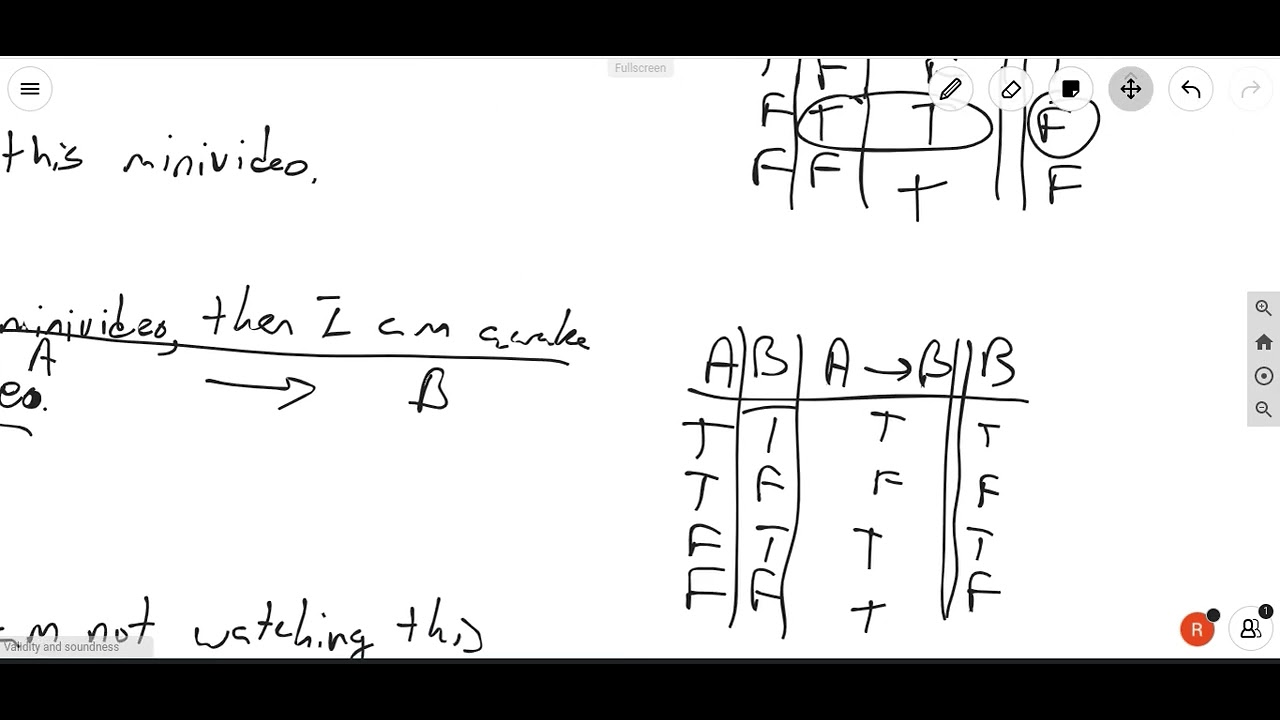 Fullscreen
F
F T T F
F F T F
this minivideo.
minivideo, then I am awake
A
eo. → B
A B A → B B
T T T T
T F F F
F T T T
F F T F
m not watching this
Validity and soundness
R
1